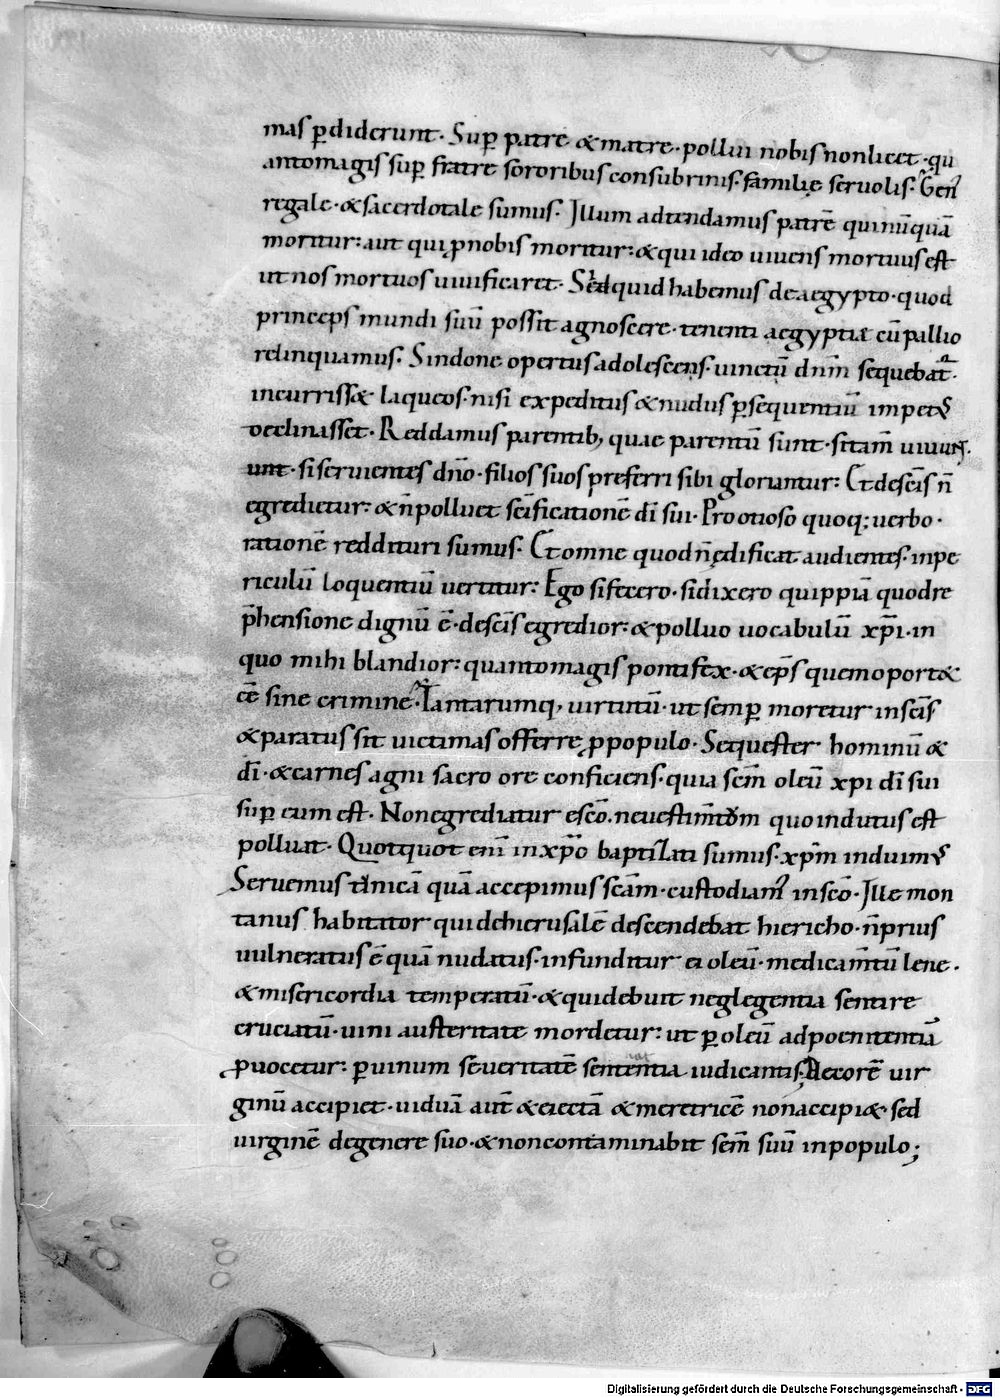 mas ꝑdiderunt. Suꝑ patre & matre. pollui nobis non licet. qu
anto magis suꝑ fratre sororibus consubrinis. familię seruolis. Gen᷒
regale. & sacerdotale sumus. Illum adtendamus patrē qui nūquā
moritur: aut qui ꝓ nobis moritur: & qui ideo uiuens mortuus est
ut nos mortuos uiuificaret. Sed quid habemus de aegypto. quod
princeps mundi suū possit agnoscere. tenenti aegyptiae cū pallio
relinquamus. Sindone opertus adolescens. uinctū dnm̄ sequebat᷒.
incurriss& laqueos. nisi expeditus & nudus ꝑsequentiū impet᷒
declinasset. Reddamus parentib; quae parentū sunt. si tam̄ uiuun
unt. si seruientes dn̄o. filios suos preferri sibi gloriantur: Et de sc̄is n̄
egredietur: & n̄ polluet sc̄ificationē dī sui. Pro otioso quoq; uerbo.
rationē reddituri sumus. Et omne quod n̄ ędificat audientes. in pe
riculū loquentiū uertitur: Ego si fecero. si dixero quippiā quod re
p̄hensione dignū ē. de sc̄is egredior: & polluo uocabulū xp̄i. in
quo mihi blandior: quanto magis pontifex. & ep̄s quem oport&
eē sine crimine. Tantarumq; uirtutū. ut semꝑ moretur in sc̄is
& paratus sit uictimas offerre ꝓ populo. Sequester hominū &
dī. & carnes agni sacro ore conficiens. quia sc̄m oleū xpi dī sui
suꝑ eum est. Non egrediatur e sc̄o. ne uestim̄tum quo indutus est
polluat. Quotquot enī in xp̄o baptizati sumus. xp̄m induim᷒
Seruemus tunicā quā accepimus sc̄am. custodiam᷒ in sc̄o. Ille mon
tanus habitator qui de hierusalē descendebat hiericho. n̄ prius
uulneratus ē quā nudatus. infunditur ei oleū. medicam̄tū lene.
& misericordia temperatū. & qui debuit neglegentia sentire
cruciatū. uini austeritate mordetur: ut ꝑ oleū ad poenitentiā
ꝓuocetur: ꝑ uinum seueritatē sententia iudicantis. Uxorē uir
ginū accipiet. uiduā aut̄ & eiectā & meretricē non accipi& sed
uirginē de genere suo. & non contaminabit sem̄ suū in populo;
Digitalisierung gefördert durch die Deutsche Forschungsgemeinschaft - DFG